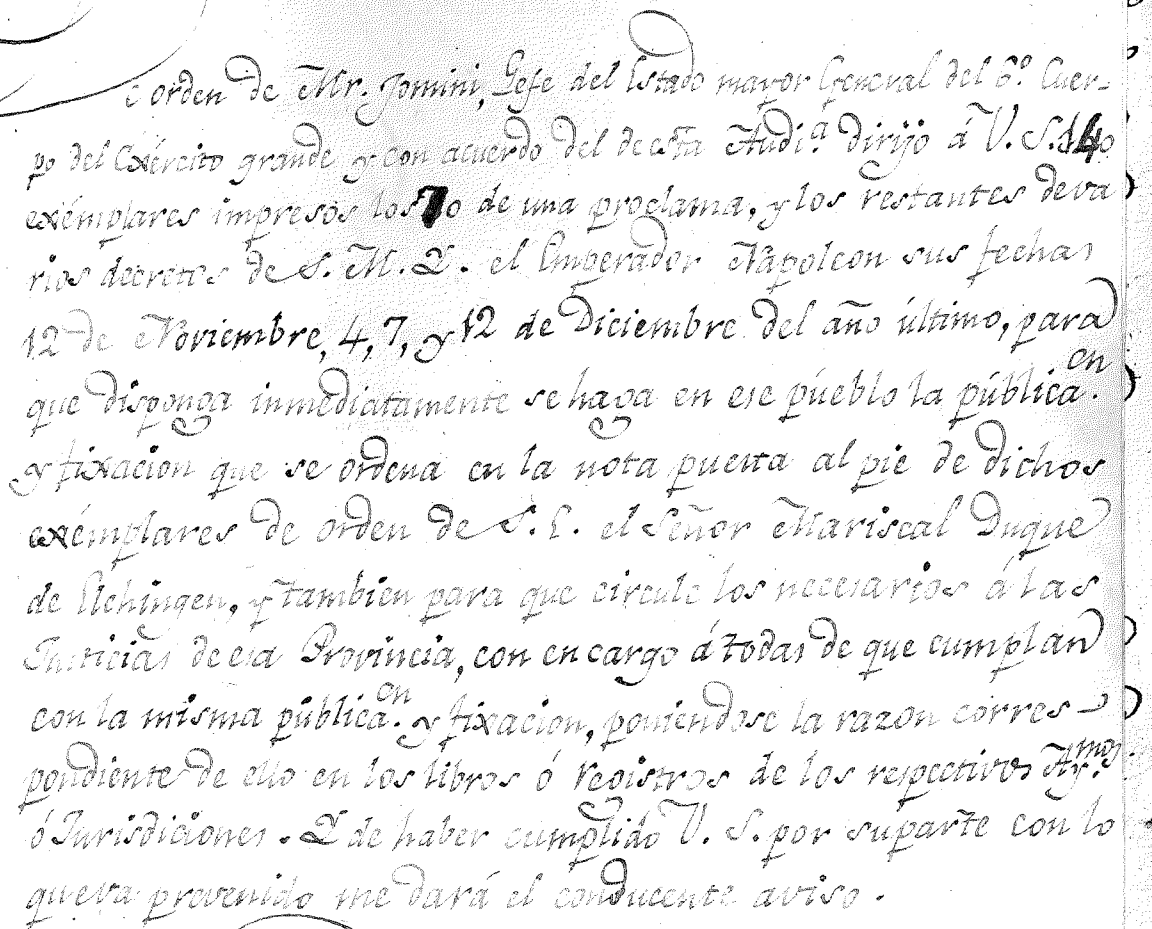 e orden de Mr. Jomini, Gefe del Estado mayor General del 6.º Cuer-
po del Exército grande y con acuerdo del de esta Audi.ª dirijo á V. S. 140
exémplares impresos los 70 de una proclama, y los restantes de va
rios decretos de S. M. Y. el Emperador Napoleon sus fechas
12 de Noviembre, 4, 7, y 12 de Diciembre del año último, para
que disponga inmediatamente se haga en ese púeblo la pública.en
y fixacion que se ordena en la nota puesta al pie de dichos
exémplares de orden de S. E. el Señor Mariscal Duque
de Elchingen, y tambien para que circule los necesarios á las
Justicias de esa Provincia, con encargo á todas de que cumplan
con la misma pública.en y fixacion, poniendose la razon corres-
pondiente de ello en los libros ó registros de los respectivos Ay.mos
ó Jurisdiciones. Y de haber cumplido V. S. por su parte con lo
que va prevenido me dará el conducente aviso.